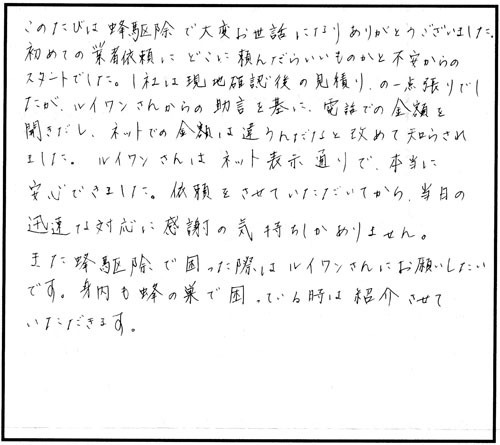 このたびは蜂駆除で大変お世話になりありがとうございました。
初めての業者依頼にどこに頼んだらいいものかと不安からの
スタートでした。1社は現地確認後の見積り、の一点張りでし
たが、ルイワンさんからの助言を基に、電話での金額を
聞きだし、ネットでの金額は違うんだなと改めて知らされ
ました。ルイワンさんはネット表示通りで、本当に
安心できました。依頼をさせていただいてから、当日の
迅速な対応に感謝の気持ちしかありません。
また蜂駆除で困った際はルイワンさんにお願いしたい
です。身内も蜂の巣で困っている時は紹介させて
いただきます。